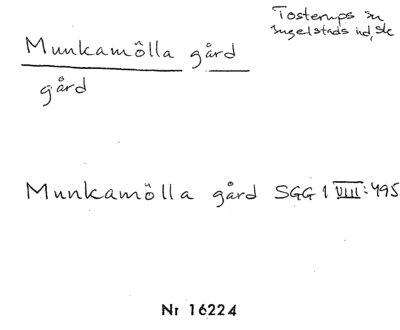 Tosterups sn
Ingelstads hd, Sk
Munkamölla gård
gård
Munkamölla gård SGG 1 VIII: 495
Nr 16224